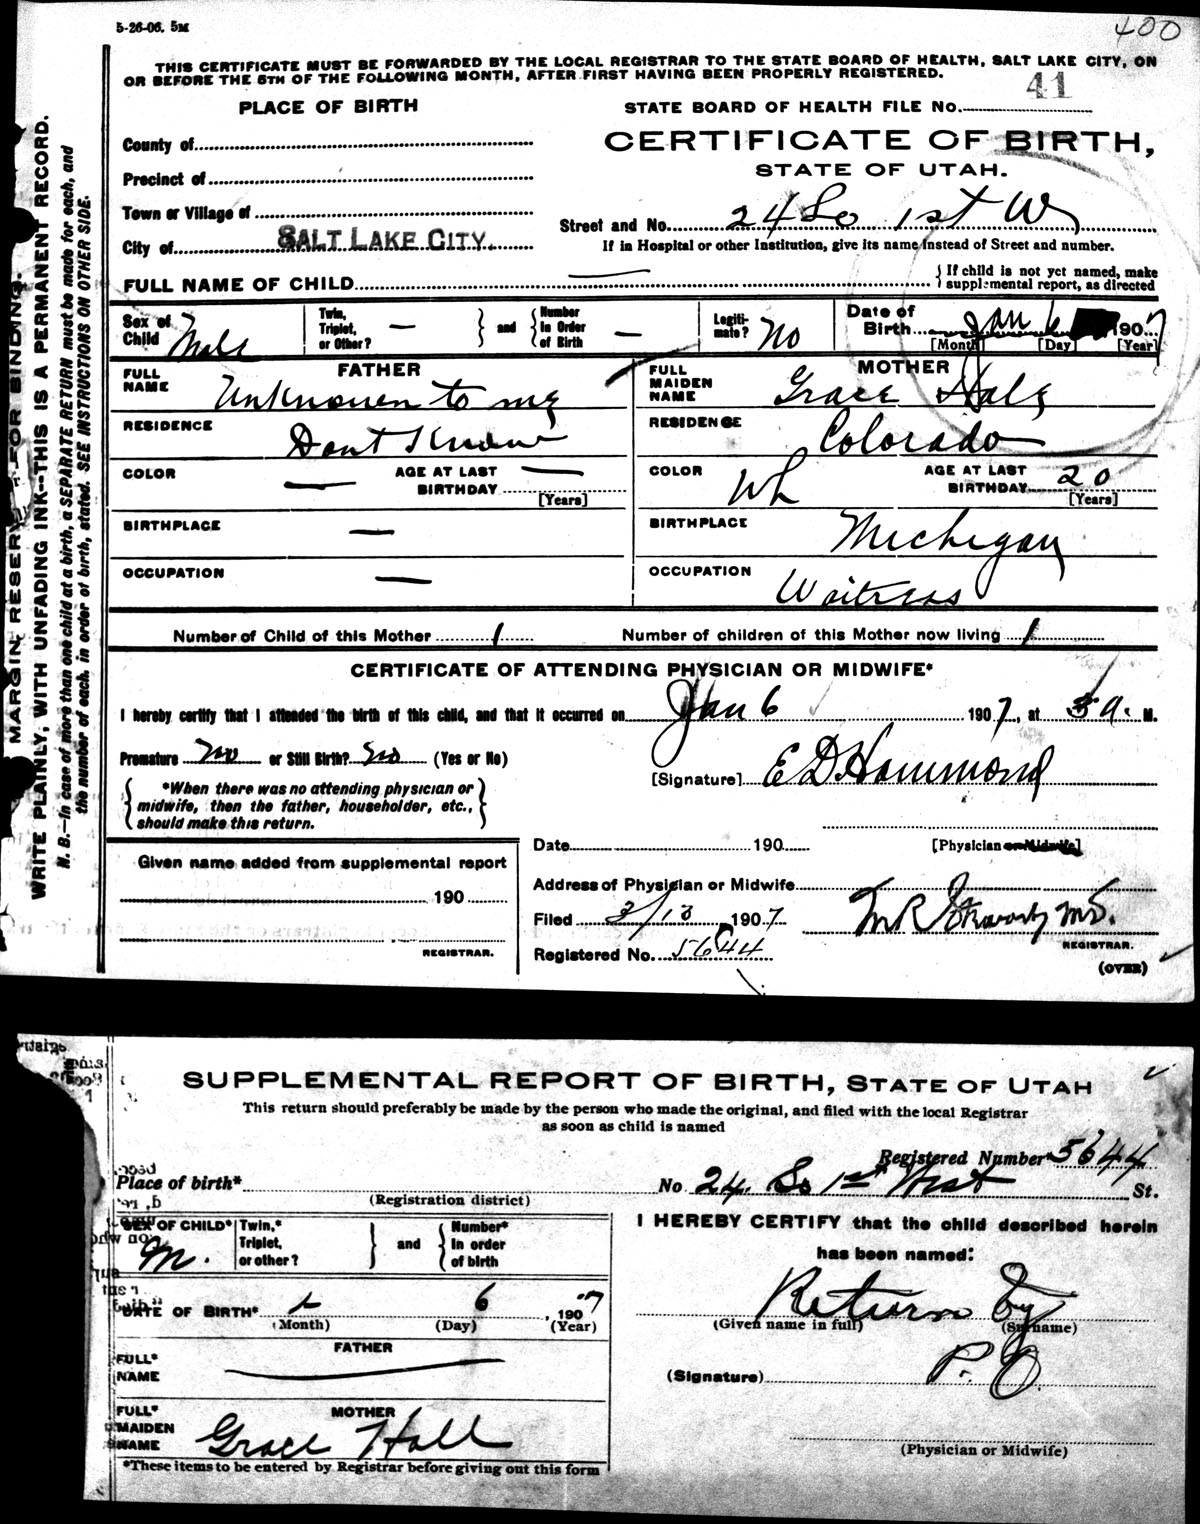 5-26-06. 5M
400
THIS CERTIFICATE MUST BE FORWARDED BY THE LOCAL REGISTRAR TO THE STATE BOARD OF HEALTH, SALT LAKE CITY, ON
OR BEFORE THE 5TH OF THE FOLLOWING MONTH, AFTER FIRST HAVING BEEN PROPERLY REGISTERED.
PLACE OF BIRTH
STATE BOARD OF HEALTH FILE No. 41
County of
CERTIFICATE OF BIRTH,
STATE OF UTAH.
Precinct of
Town or Village of
Street and No. 24 So 1st W
City of SALT LAKE CITY.
If in Hospital or other Institution, give its name instead of Street and number.
FULL NAME OF CHILD —
{ If child is not yet named, make
supplemental report, as directed
Sex of Child Male
Twin, Triplet, or Other? — } and { Number in Order of Birth —
Legitimate? No
Date of Birth Jan 6 1907
[Month] [Day] [Year]
FATHER
FULL NAME Unknown to me
RESIDENCE Dont Know
COLOR —
AGE AT LAST BIRTHDAY —
[Years]
BIRTHPLACE —
OCCUPATION —
MOTHER
FULL MAIDEN NAME Grace Hale
RESIDENCE Colorado
COLOR Wh
AGE AT LAST BIRTHDAY 20
[Years]
BIRTHPLACE Michigan
OCCUPATION Waitress
Number of Child of this Mother 1
Number of children of this Mother now living 1
CERTIFICATE OF ATTENDING PHYSICIAN OR MIDWIFE*
I hereby certify that I attended the birth of this child, and that it occurred on Jan 6 1907, at 3 a. M.
Premature no or Still Birth? no (Yes or No)
[Signature] E D Hammond
{ *When there was no attending physician or
midwife, then the father, householder, etc.,
should make this return. }
Date 190
[Physician or Midwife]
Given name added from supplemental report
190
REGISTRAR.
Address of Physician or Midwife
Filed 3/13 1907
M.D.
REGISTRAR.
Registered No. 5644
(OVER)
MARGIN RESERVED FOR BINDING.
WRITE PLAINLY, WITH UNFADING INK—THIS IS A PERMANENT RECORD.
N. B.—In case of more than one child at a birth, a SEPARATE RETURN must be made for each, and
the number of each, in order of birth, stated. SEE INSTRUCTIONS ON OTHER SIDE.
SUPPLEMENTAL REPORT OF BIRTH, STATE OF UTAH
This return should preferably be made by the person who made the original, and filed with the local Registrar
as soon as child is named
Registered Number 5644
Place of birth* No 24 So 1st West St.
(Registration district)
SEX OF CHILD* M.
Twin,* Triplet, or other? } and { Number* in order of birth
I HEREBY CERTIFY that the child described herein
has been named:
DATE OF BIRTH* 6 1907
(Month) (Day) (Year)
Return by
(Given name in full) (Surname)
FATHER
FULL* NAME
(Signature) P. O.
MOTHER
FULL* MAIDEN NAME Grace Hall
(Physician or Midwife)
*These items to be entered by Registrar before giving out this form